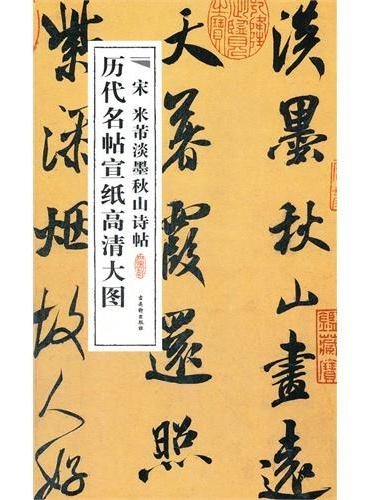 淡墨秋山畫遠
天暮霞還照
紫深烟故人好
宋 米芾淡墨秋山诗帖
历代名帖宣纸高清大图